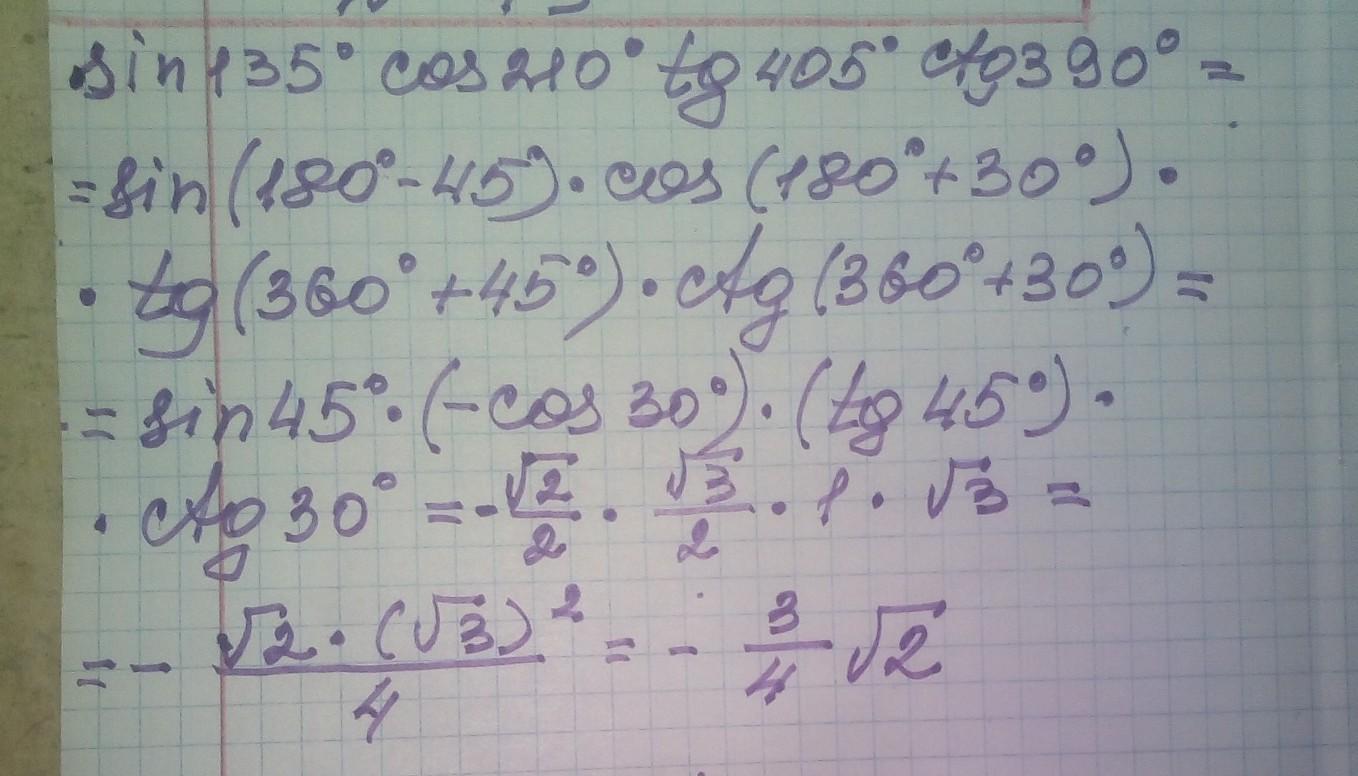 sin 135° cos 210° tg 405° ctg 390° =
= sin (180° - 45°) · cos (180° + 30°) ·
· tg (360° + 45°) · ctg (360° + 30°) =
= sin 45° · (- cos 30°) · (tg 45°) ·
· ctg 30° = - √2/2 · √3/2 · 1 · √3 =
= - √2 · (√3)²/4 = - 3/4 √2